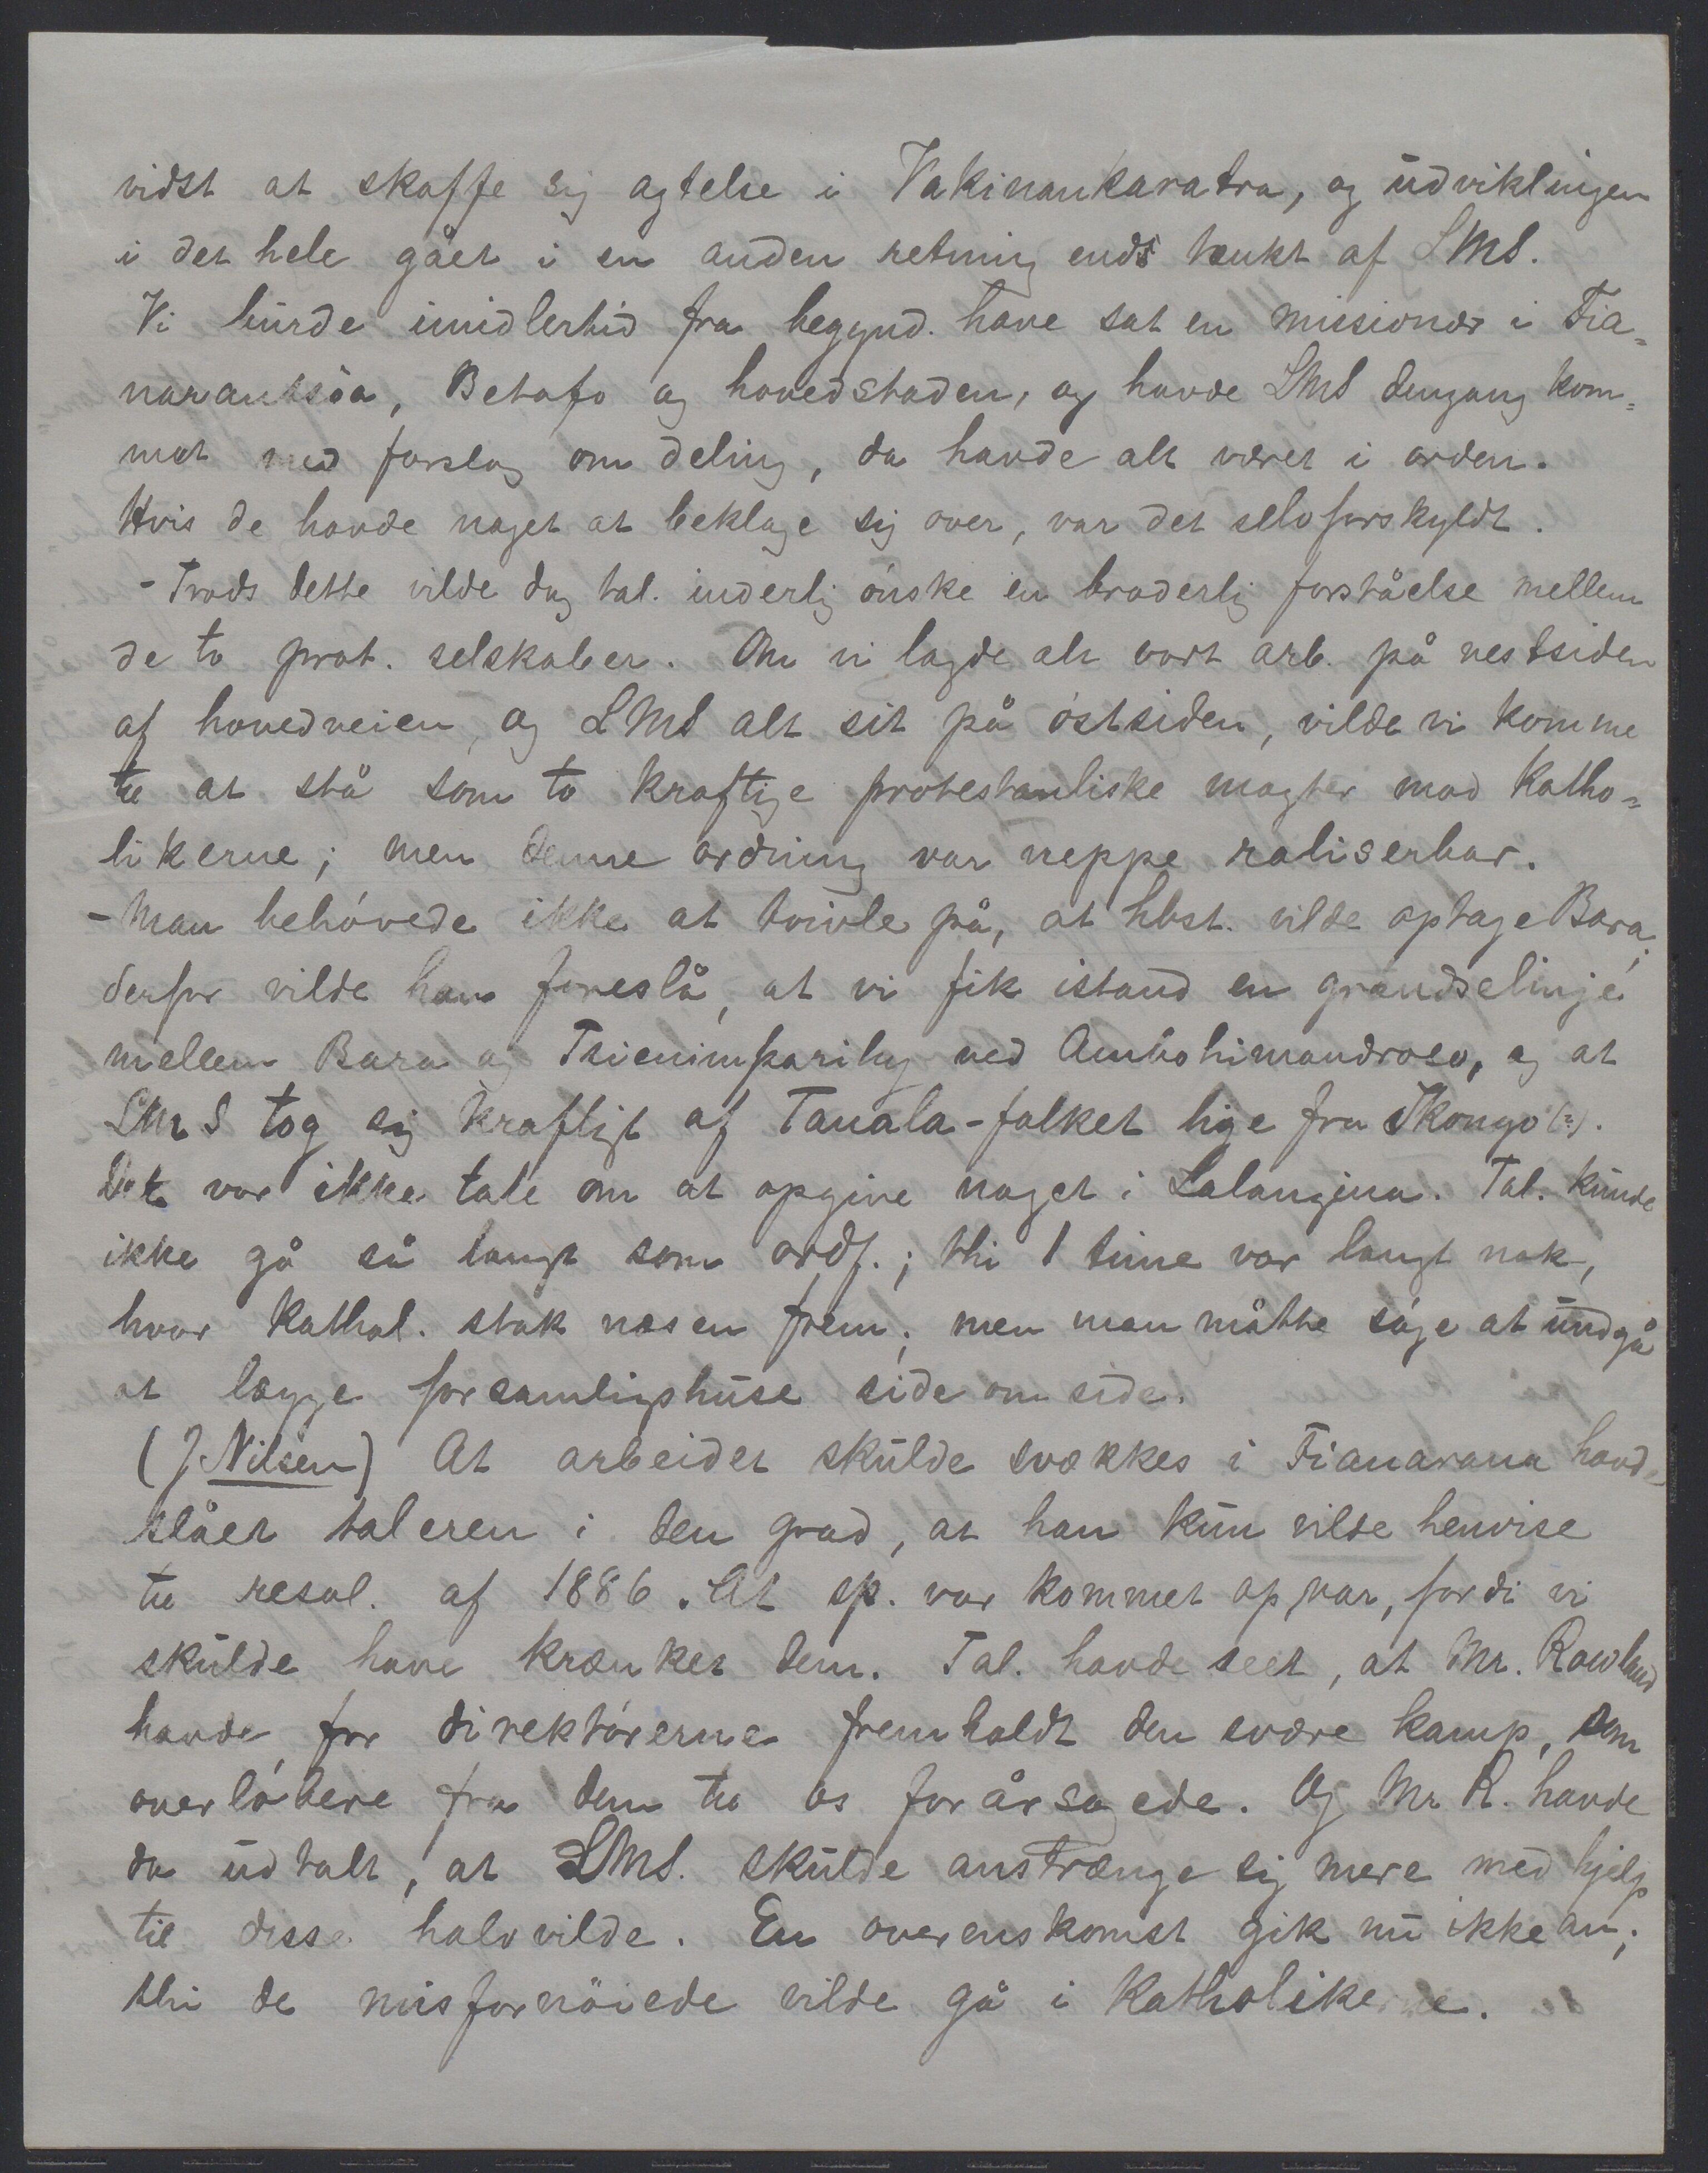 vidst at skaffe sig agtelse i Vakinankaratra, og udviklingen
i det hele gået i en anden retning ends tænkt af LMS.
Vi burde imidlertid fra begynd. have sat en missionær i Fia=
narantsòa, Betafo og hovedstaden, og havde LMS dengang kom=
met med forslag om deling, da havde alt været i orden.
Hvis de havde noget at beklage sig over, var det selvforskyldt.
- Trods dette vilde dog tal. inderlig ónske en broderlig forståelse mellem
de to prot. selskaber. Om vi lagde alt vort arb. på vestsiden
af hovedveien, og LMS alt sit på óstsiden, vilde vi komme
til at stå som to kraftige protestantiske magter mod Katho=
likerne; men denne ordning var neppe raliserbar.
- Man behóvede ikke at tvivle på, at hbst. vilde optage Bara;
derfor vilde han foreslå, at vi fik istand en grændselinje
mellem Bara og Tsienimparihy ved Ambohimandroso, og at
LMS tog sig kraftigt af Tanala-folket lige fra Ikongo (?).
Det var ikke tale om at opgive noget i Lalangina. Tal. kunde
ikke gå så langt som ordf.; thi 1 time var langt nok,
hvor Kathol. stak næsen frem; men man måtte sóge at undgå
at lægge forsamlingshuse side om side.
(J. Nilsen) At arbeidet skulde svækkes i Fianarana hand-
slåer taleren i den grad, at han kun vilde henvise
til resol. af 1886. At sp. var kommet op, var, fordi vi
skulde have krænket dem. Tal. havde seet, at Mr. Rowland
havde for direktórerne fremholdt den svære kamp, som
overlóbere fra dem til os forårsagede. Og Mr. R. havde
da udtalt, at LMS. skulde anstrænge sig mere med hjelp
til disse halvvilde. En overenskomst gik nu ikke an;
thi de misfornöiede vilde gå i Katholikerne.